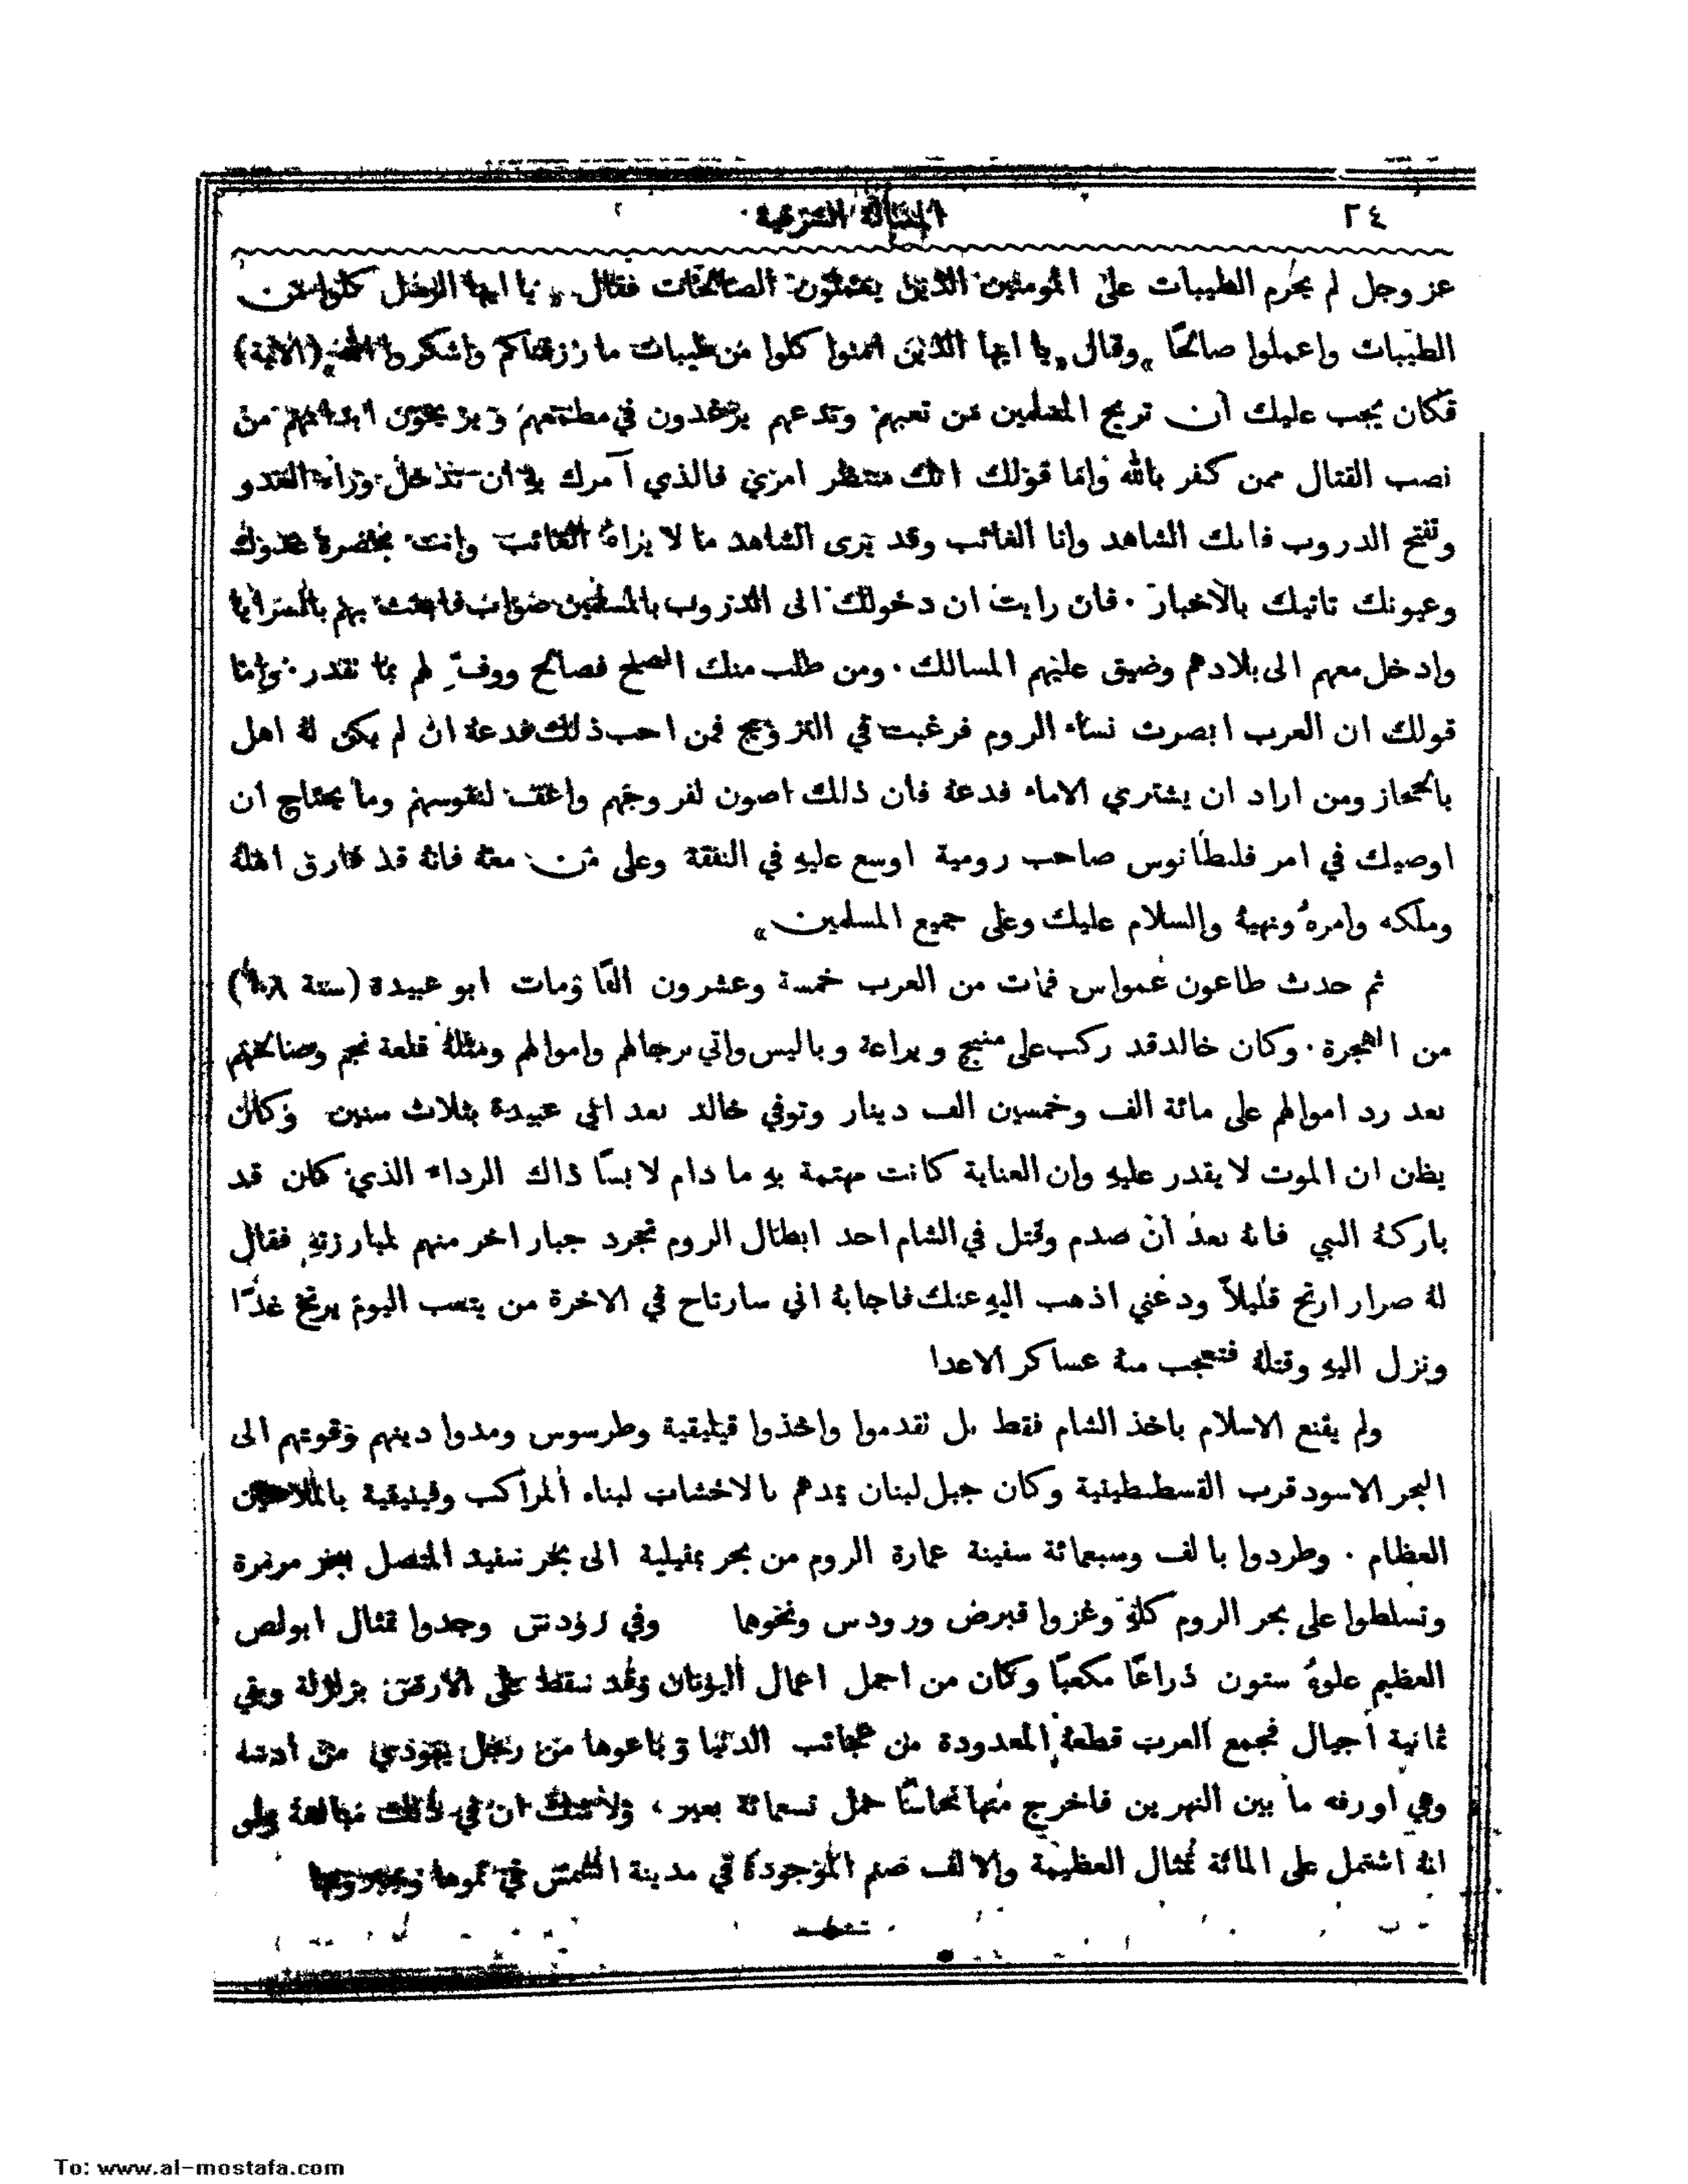 ٢٤
المقالة الشرقية
عز وجل لم يحرم الطيبات على المومنين الذين يعملون الصالحات فقال „ يا ايها الرسل كلوا من
الطيبات واعملوا صالحًا “ وقال „ يا ايها الذين امنوا كلوا من طيبات ما رزقناكم واشكروا الله “ (الاية)
فكان يجب عليك ان تريح المسلمين من تعبهم وتدعهم يرغدون في مطعمهم ويريحون ابدانهم من
نصب القتال ممن كفر بالله واما قولك انك منتظر امري فالذي آمرك به ان تدخل وراء العدو
وتفتح الدروب فانك الشاهد وانا الغائب وقد يرى الشاهد ما لا يراهُ الغائب وانت بحضرة عدوك
وعيونك تاتيك بالاخبار ٠ فان رايت ان دخولك الى الدروب بالمسلمين صواب فابعث بهم بالسرايا
وادخل معهم الى بلادهم وضيق عليهم المسالك ٠ ومن طلب منك الصلح فصالح ووفِّ لهم بما تقدر ٠ واما
قولك ان العرب ابصرت نساء الروم فرغبت في التزويج فمن احب ذلك فدعهُ ان لم يكن لهُ اهل
بالحجاز ومن اراد ان يشتري الاماء فدعهُ فان ذلك اصون لفروجهم واعف لنفوسهم وما يحتاج ان
اوصيك في امر فلنطانوس صاحب رومية اوسع عليهِ في النفقة وعلى من معهُ فانهُ قد فارق اهلهُ
وملكه وامرهُ ونهيهُ والسلام عليك وعلى جميع المسلمين “
ثم حدث طاعون عمواس فمات من العرب خمسة وعشرون الفًا ومات ابو عبيدة (سنة
من الهجرة ٠ وكان خالد قد ركب على منبج وبراعة وباليس واتي برجالهم واموالهم ومثلهُ قلعة نجم وصالحهم
بعد رد اموالهم على مائة الف وخمسين الف دينار وتوفي خالد بعد ابي عبيدة بثلاث سنين وكان
يظن ان الموت لا يقدر عليهِ وان العناية كانت مهتمة بهِ ما دام لابسًا ذاك الرداء الذي كان قد
باركهُ النبي فانهُ بعد ان صدم وقتل في الشام احد ابطال الروم تجرد جبار اخر منهم لمبارزتهِ فقال
لهُ ضرار ارتح قليلاً ودعني اذهب اليهِ عنك فاجابهُ اني سارتاح في الاخرة من يتعب اليوم يرتح غدًا
ونزل اليهِ وقتلهُ فتعجب منهُ عساكر الاعدا
ولم يقنع الاسلام باخذ الشام فقط بل تقدموا واخذوا قيليقية وطرسوس ومدوا دينهم وقوتهم الى
البحر الاسود قرب القسطنطينية وكان جبل لبنان يمدهم بالاخشاب لبناء المراكب وفينيقية بالملاحين
العظام ٠ وطردوا بالف وسبعمائة سفينة عمارة الروم من بحر بمفيلية الى بحر سفيد المتصل ببحر مرمرة
وتسلطوا على بحر الروم كلهِ وغزوا قبرص ورودس ونحوها وفي رودس وجدوا تمثال ابولص
العظيم علوهُ ستون ذراعًا مكعبًا وكان من اجمل اعمال اليونان وقد سقط على الارض بزلزلة وبقي
ثمانية اجيال فجمع العرب قطعهُ المعدودة من عجائب الدنيا وباعوها من رجل يهودي من ادسه
وهي اورفه ما بين النهرين فاخرج منها نحاسًا حمل تسعمائة بعير ، ولا شك ان في ذلك مبالغة ولو
انهُ اشتمل على المائة تمثال العظيمة والالف صنم الموجودة في مدينة الشمس في نموها
To: www.al-mostafa.com